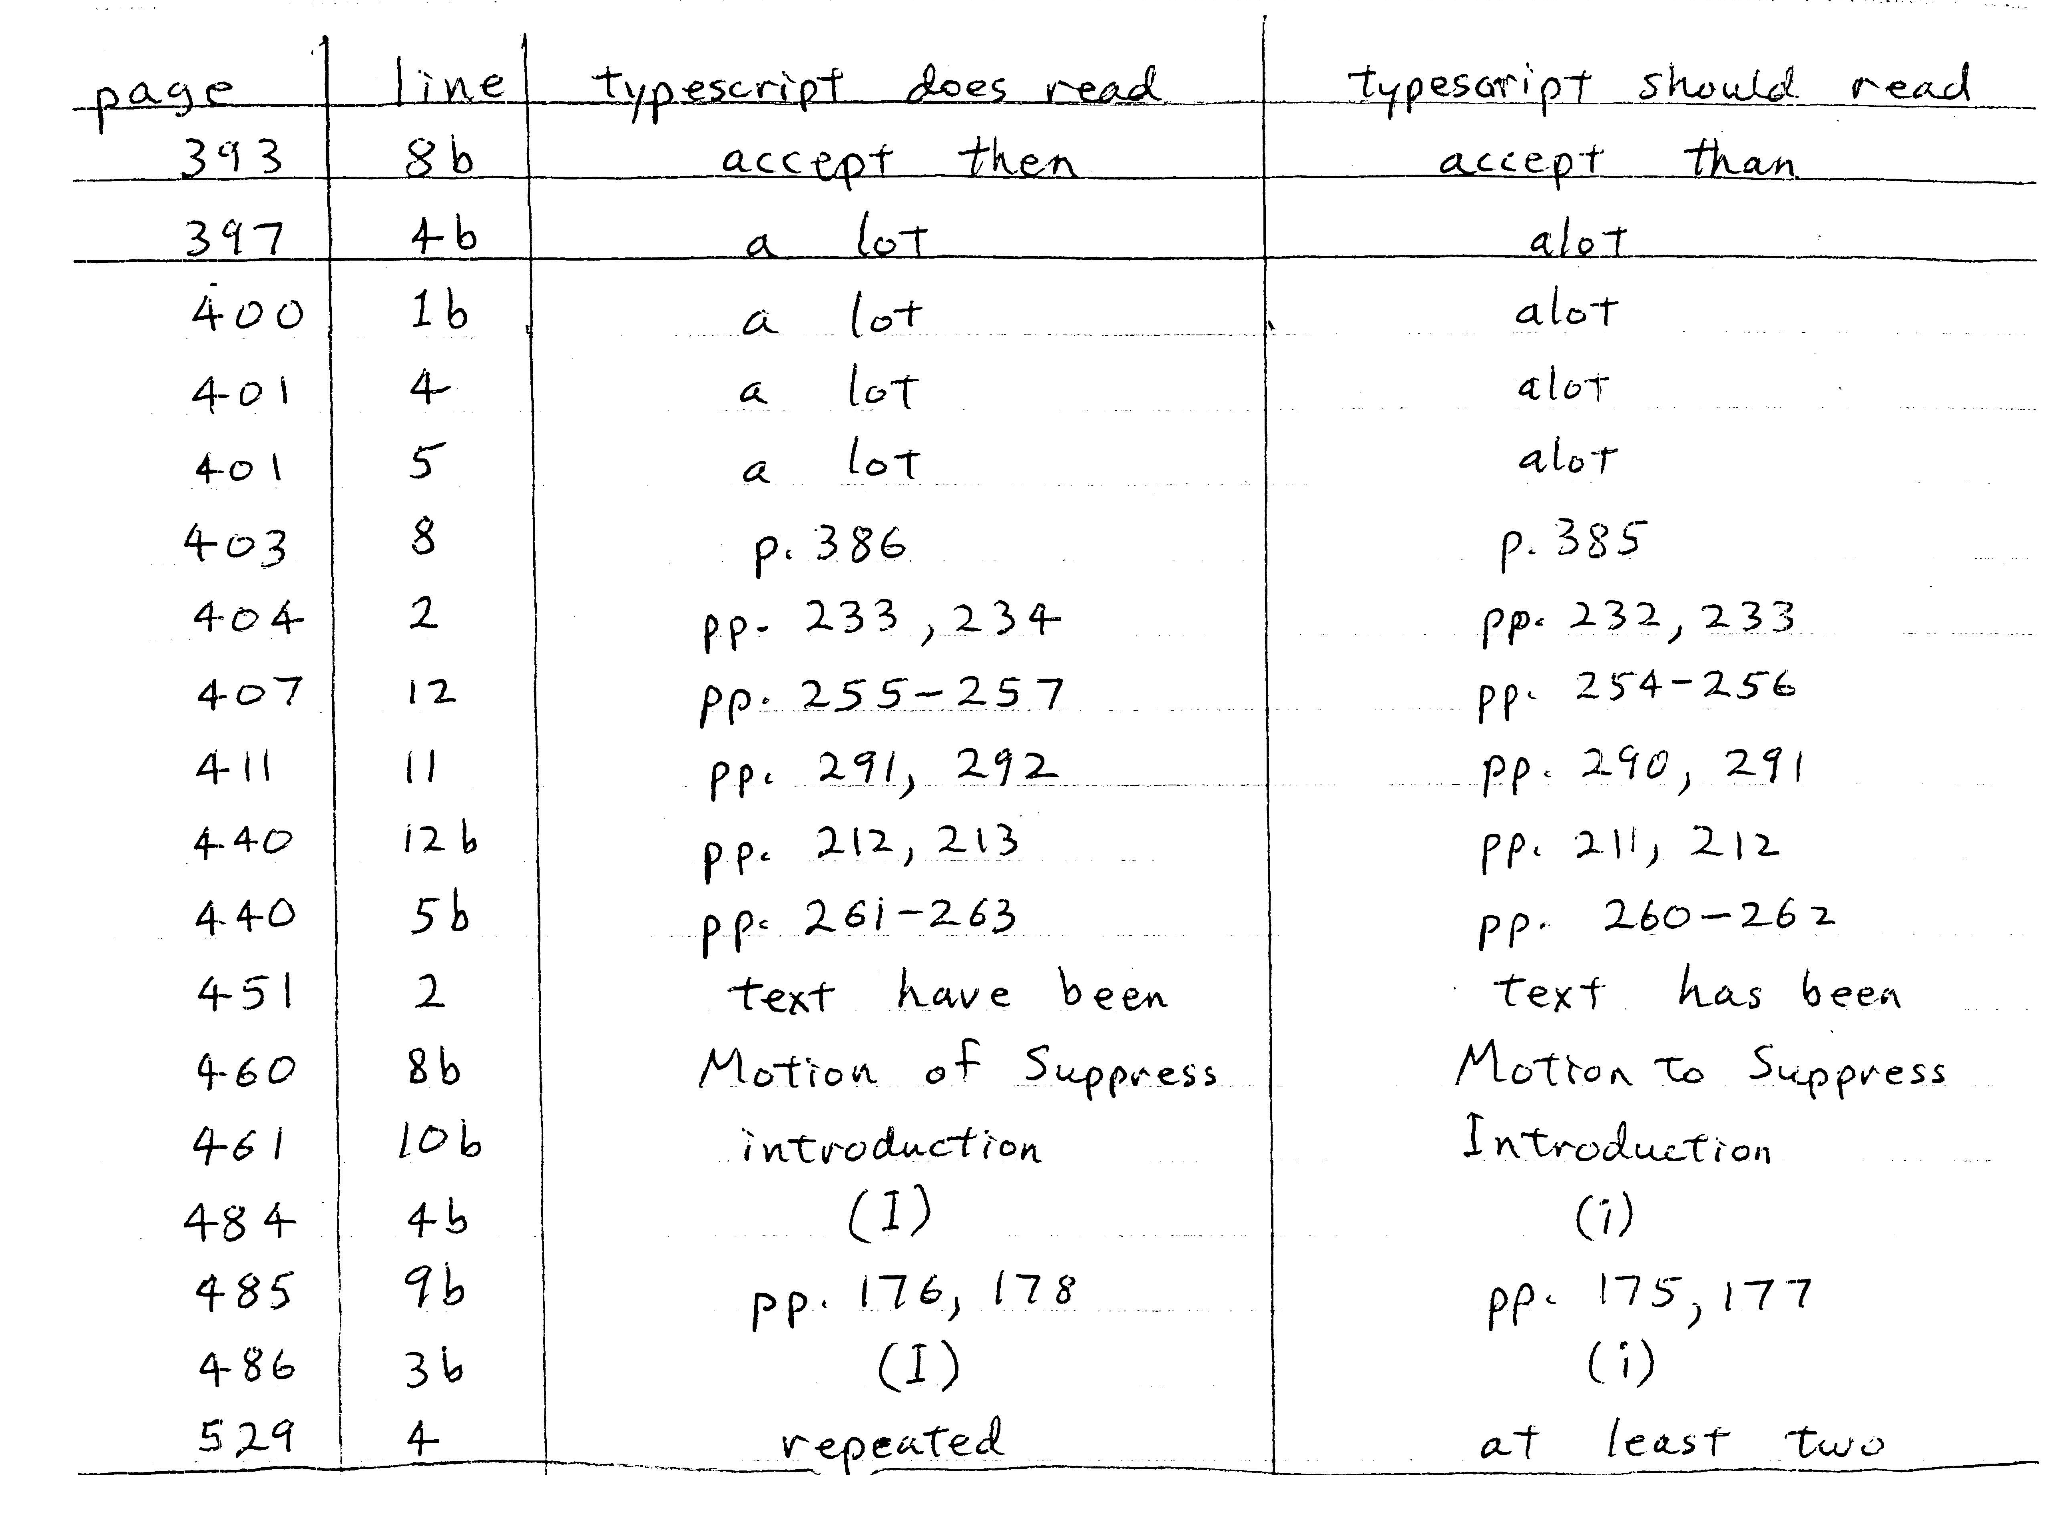 page line typescript does read typescript should read
393 8b accept then accept than
397 4b a lot alot
400 1b a lot alot
401 4 a lot alot
401 5 a lot alot
403 8 p. 386 p. 385
404 2 pp. 233, 234 pp. 232, 233
407 12 pp. 255-257 pp. 254-256
411 11 pp. 291, 292 pp. 290, 291
440 12b pp. 212, 213 pp. 211, 212
440 5b pp. 261-263 pp. 260-262
451 2 text have been text has been
460 8b Motion of Suppress Motion to Suppress
461 10b introduction Introduction
484 4b (I) (i)
485 9b pp. 176, 178 pp. 175, 177
486 3b (I) (i)
529 4 repeated at least two